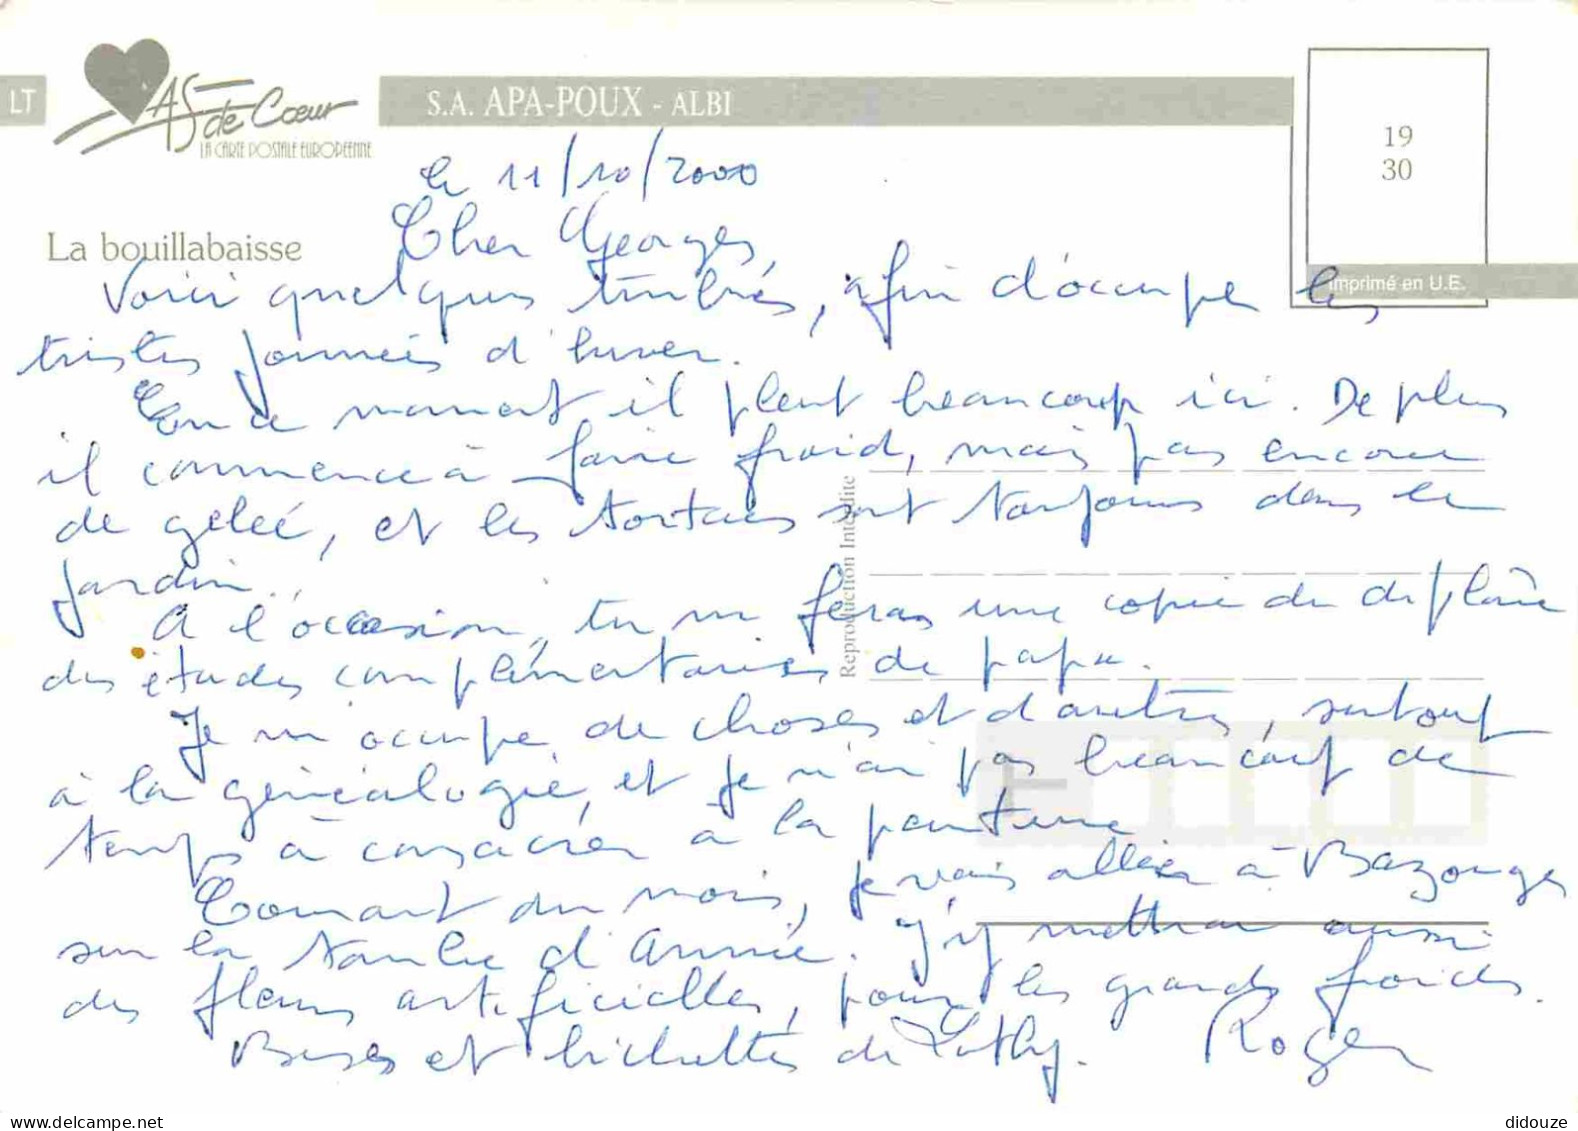 LT
As de Cœur
LA CARTE POSTALE EUROPÉENNE
S.A. APA-POUX - ALBI
19
30
Imprimé en U.E.
La bouillabaisse
Reproduction Interdite
le 11/10/2000
Cher Georges,
Voici quelques timbrés, afin d'occuper les
tristes journées d'hiver.
En ce moment il pleut beaucoup ici. De plus
il commence à faire froid, mais pas encore
de gelée, et les tortues sont toujours dans le
jardin.
A l'occasion, tu me feras une copie du diplôme
des études complémentaires de papa.
Je m'occupe de choses et d'autres, surtout
à la généalogie, et je n'ai pas beaucoup de
temps à consacrer à la peinture.
Courant du mois, je vais aller à Bazouges
sur la tombe d'Annie. J'y mettrai aussi
des fleurs artificielles, pour les grands froids.
Bises et bichettes de Cathy. Roger
didouze